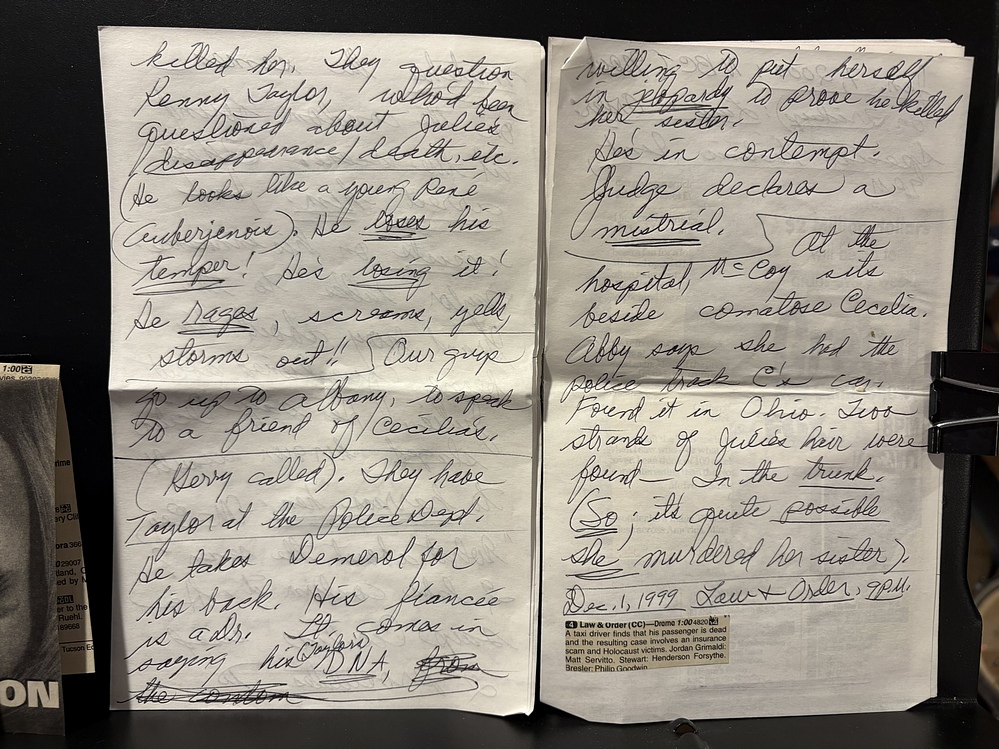 killed her. They question
Kenny Taylor, who'd been
questioned about Julie's
disappearance/death, etc.
(He looks like a young René
Auberjenois). He loses his
temper! He's losing it!
He rages, screams, yells,
storms out!! Our guys
go up to Albany, to speak
to a friend of Cecilia's.
(Gerry called). They have
Taylor at the Police Dept.
He takes Demerol for
his back. His fiancée
is a Dr. It comes in
saying his (Taylor's) DNA, from
the condom
willing to put herself
in jeopardy to prove he killed
her sister.
He's in contempt.
Judge declares a
mistrial. At the
hospital, McCoy sits
beside comatose Cecelia.
Abby says she had the
police track C's car.
Found it in Ohio. Two
strands of Julie's hair were
found— In the trunk.
(So; it's quite possible
she murdered her sister).
Dec. 1, 1999 Law + Order, 9p.m.
4 Law & Order (CC)—Drama 1:00 4820
A taxi driver finds that his passenger is dead
and the resulting case involves an insurance
scam and Holocaust victims. Jordan Grimaldi:
Matt Servitto. Stewart: Henderson Forsythe.
Bresler: Philip Goodwin.
1:00
ON
rime
ery Cli
ora 366
29007
tland, C
ed by M
er to the
Ruehl.
69668
Tucson Ed